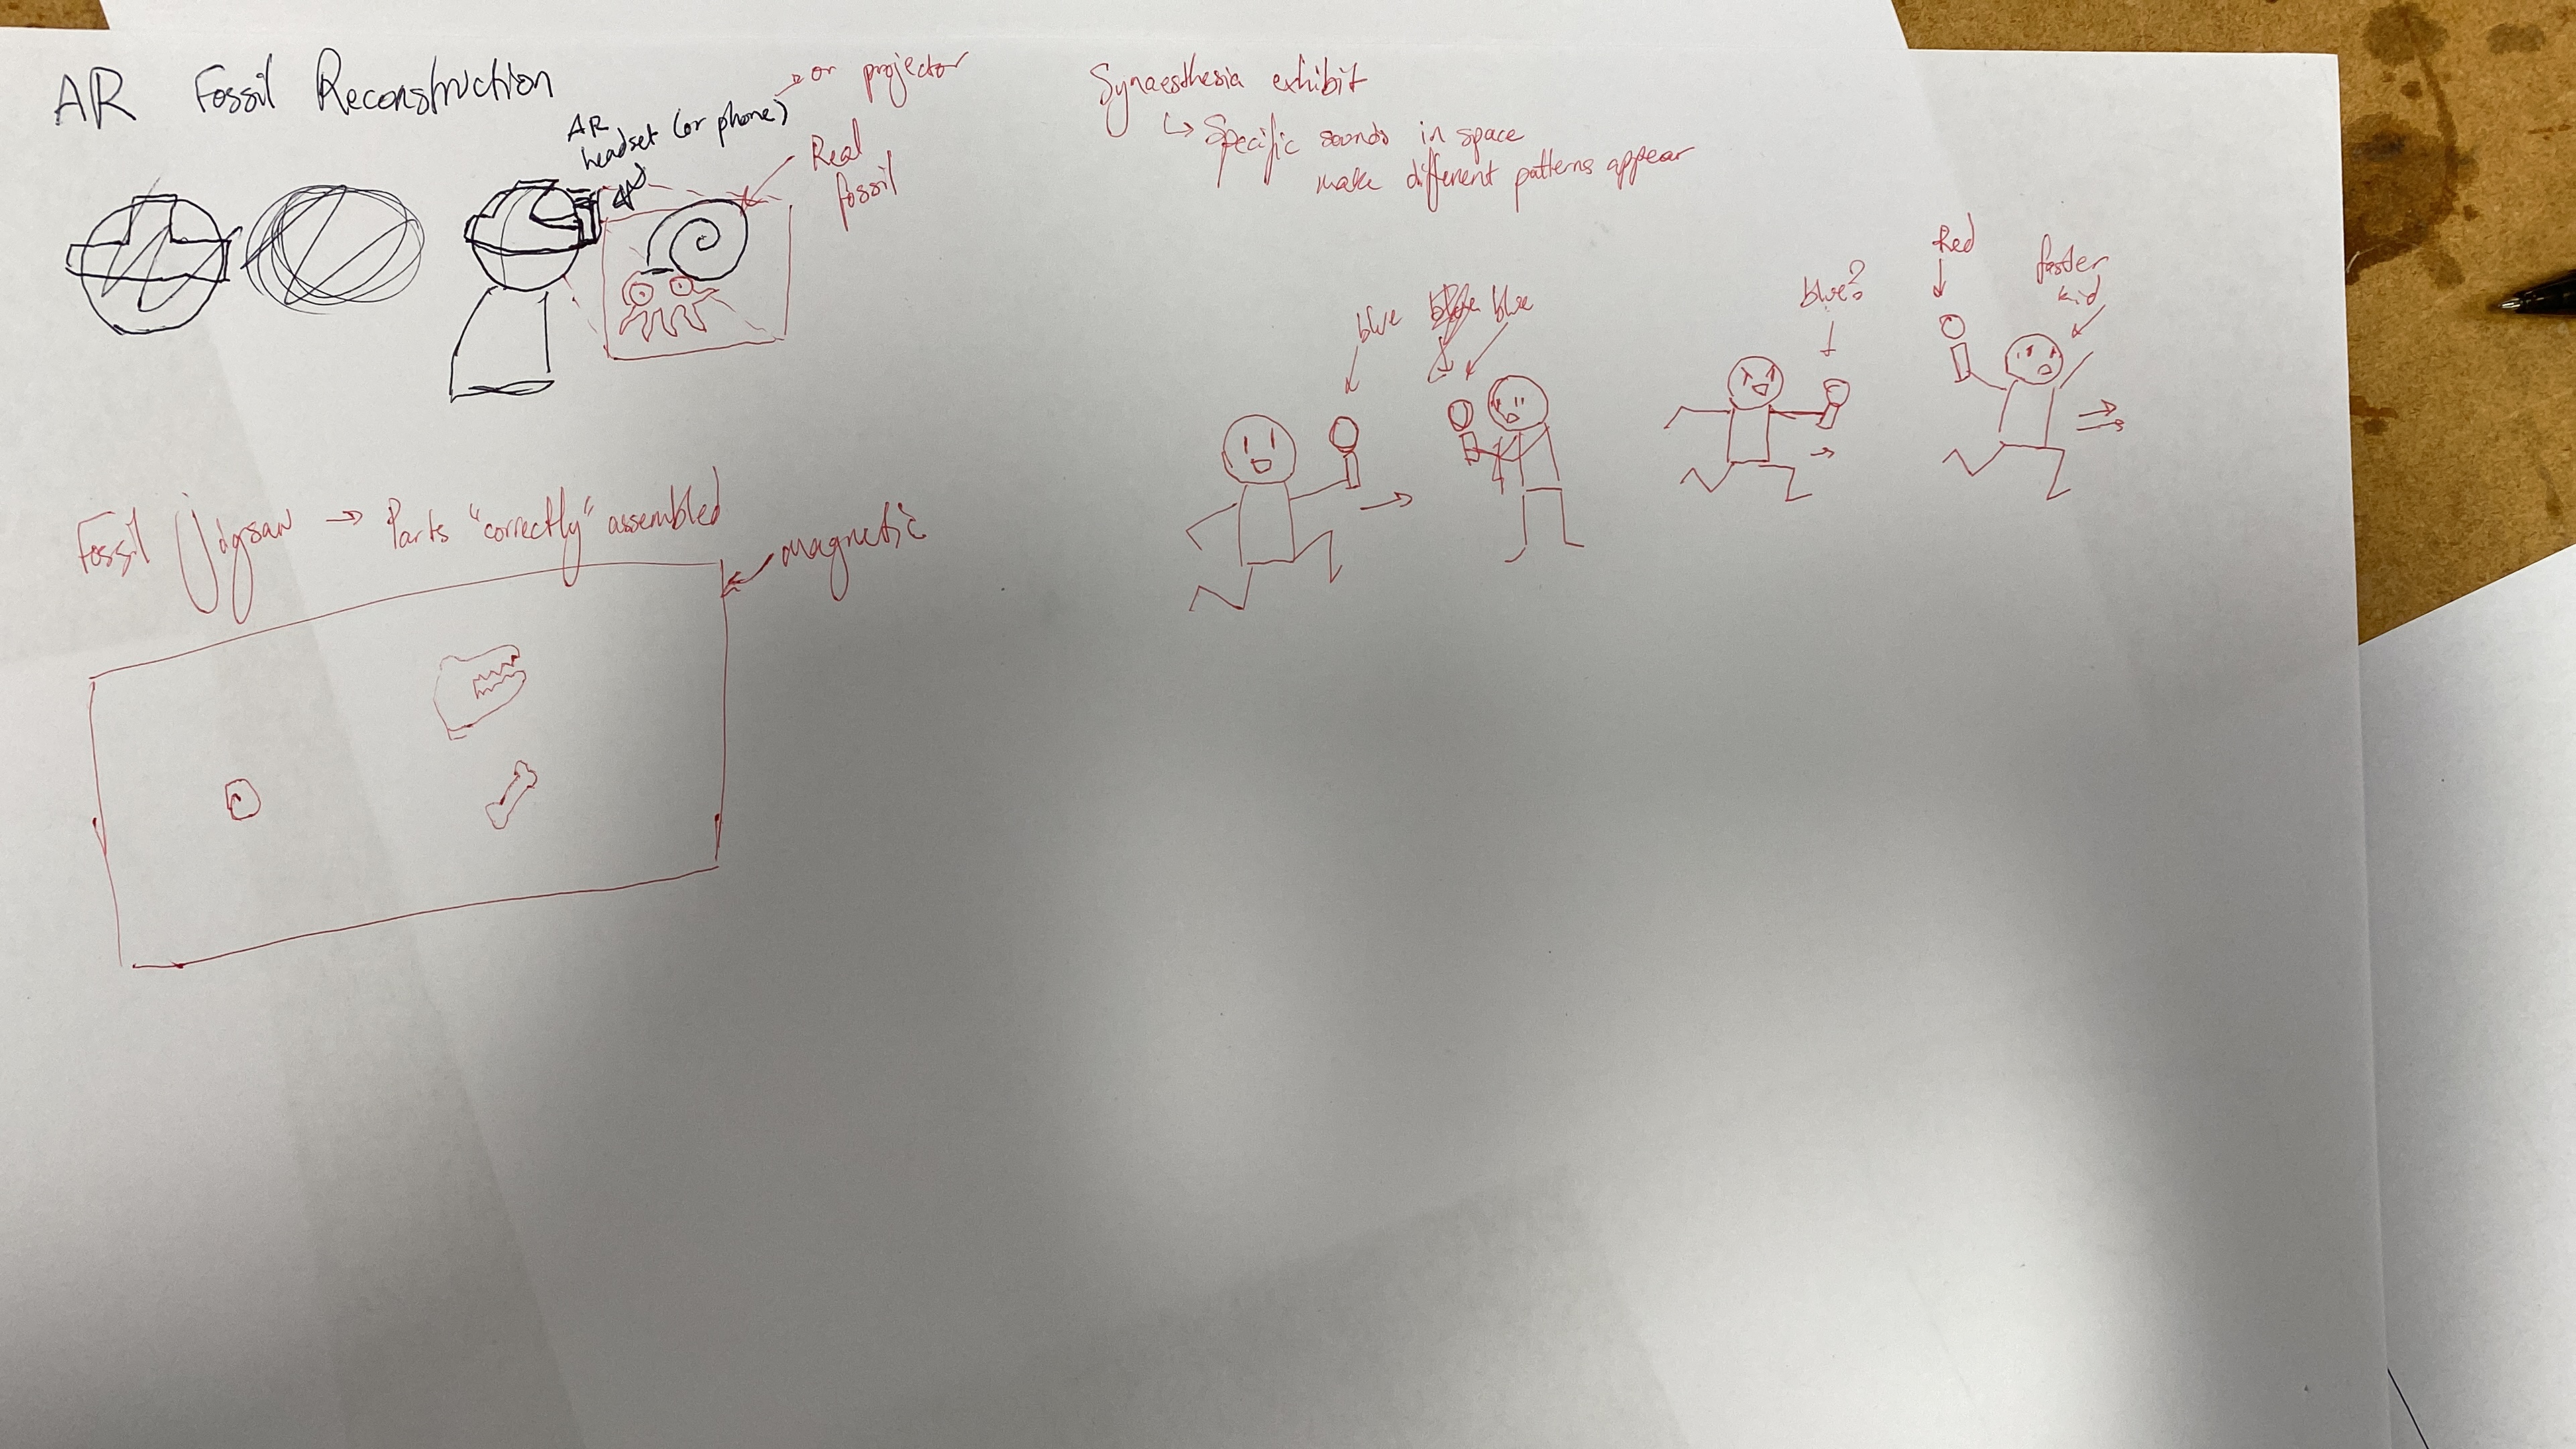 AR Fossil Reconstruction
AR
headset (or phone)
→ or projector
Real
fossil
Fossil Jigsaw → Parts "correctly" assembled
magnetic
Synaesthesia exhibit
↳ Specific sounds in space
make different patterns appear
blue
blue
blue?
Red
faster
kid